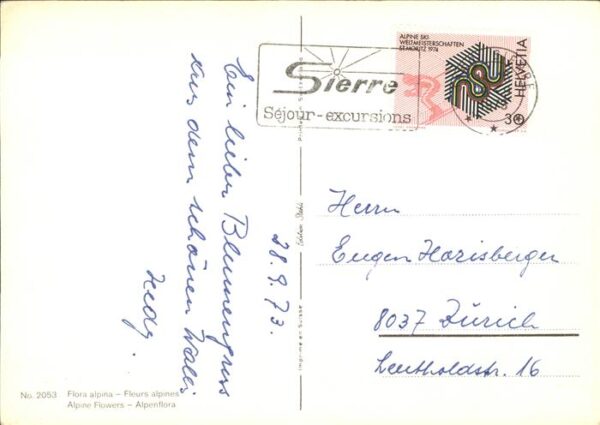 Ein lieber Blumengruss
aus dem schönen Wallis
Hedy.
28.9.73.
No. 2053 Flora alpina – Fleurs alpines
Alpine Flowers – Alpenflora
Imprimé en Suisse
Edition Stehli
Sierre
Séjour-excursions
ALPINE SKI
WELTMEISTERSCHAFTEN
ST. MORITZ 1974
HELVETIA
30
Herrn
Eugen Harisberger
8037 Zürich
Leutholdstr. 16